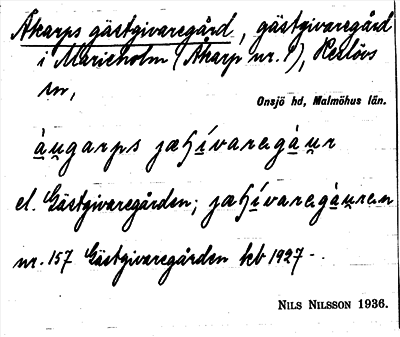 Åkarps gästgivaregård, gästgivaregård
i Marieholm (Åkarp nr. 1), Reslövs
sn,
Onsjö hd, Malmöhus län.
àu̯garps jæʃívaregàu̯r
el. Gästgivaregården; jæʃívaregàu̯ren
nr. 157 Gästgivaregården kb 1927 -
NILS NILSSON 1936.